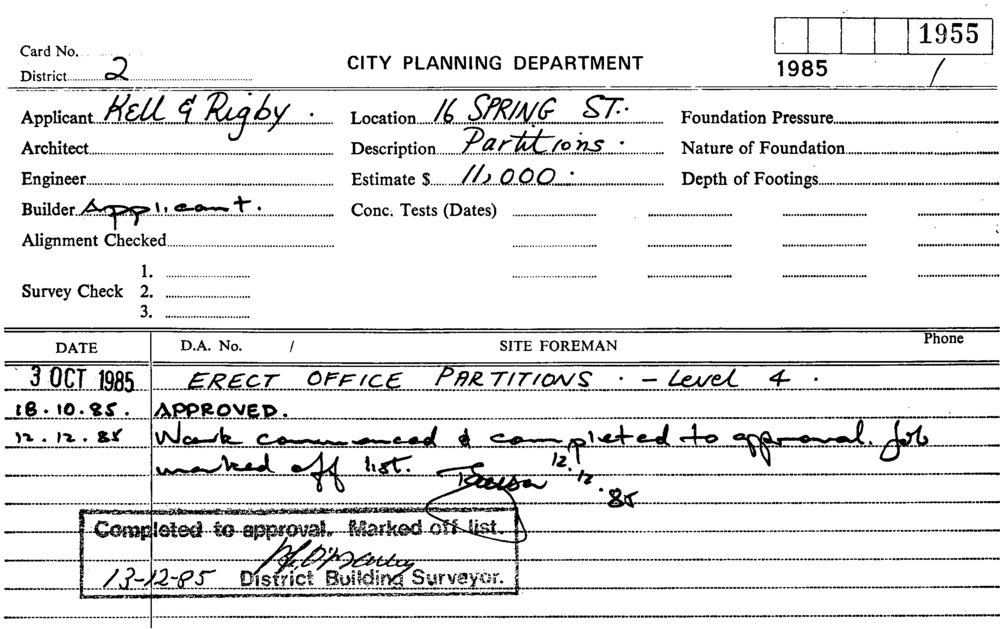 1955
Card No.
District 2
CITY PLANNING DEPARTMENT
1985 /
Applicant Kell & Rigby.
Location 16 SPRING ST.
Foundation Pressure
Architect
Description Partitions.
Nature of Foundation
Engineer
Estimate $ 11,000.
Depth of Footings
Builder Applicant.
Conc. Tests (Dates)
Alignment Checked
1.
Survey Check 2.
3.
DATE D.A. No. / SITE FOREMAN Phone
3 OCT 1985 ERECT OFFICE PARTITIONS. - Level 4.
18.10.85. APPROVED.
12.12.85 Work commenced & completed to approval. Job
marked off list. 12.12.85
Completed to approval. Marked off list.
13-12-85 District Building Surveyor.